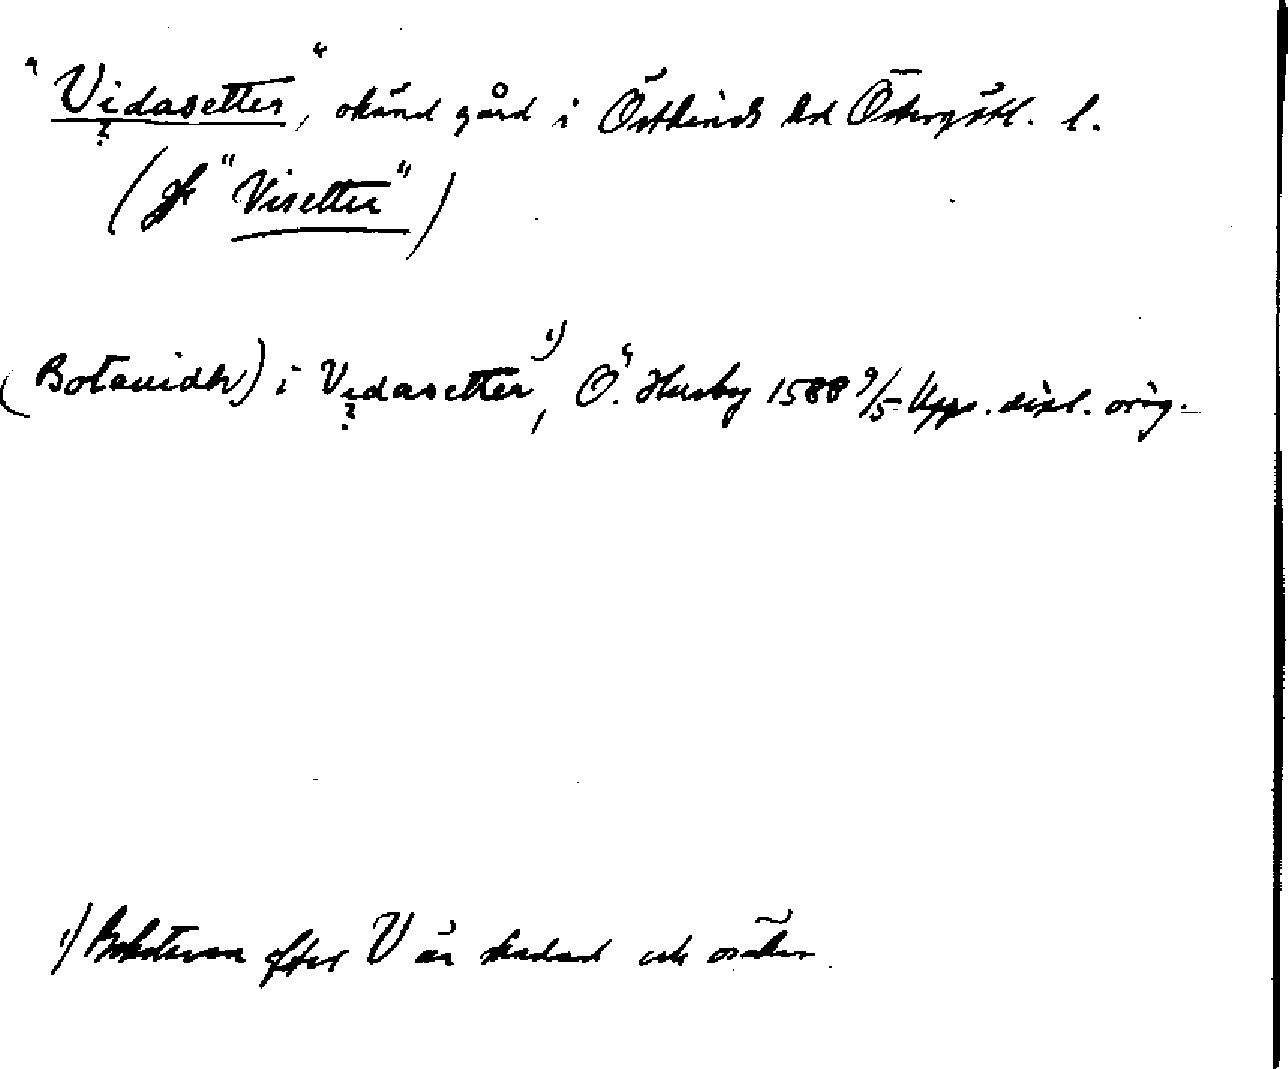 "Vidasetter", okänd gård i Östkinds hd Östergötl. l.
?
(Jfr "Visetter")
(Botauidh) i Vidasetter ¹⁾, Ö. Husby 1588 9/5 Upps. dipl. orig.
?
¹⁾ Bokstaven efter V är skadad och osäker